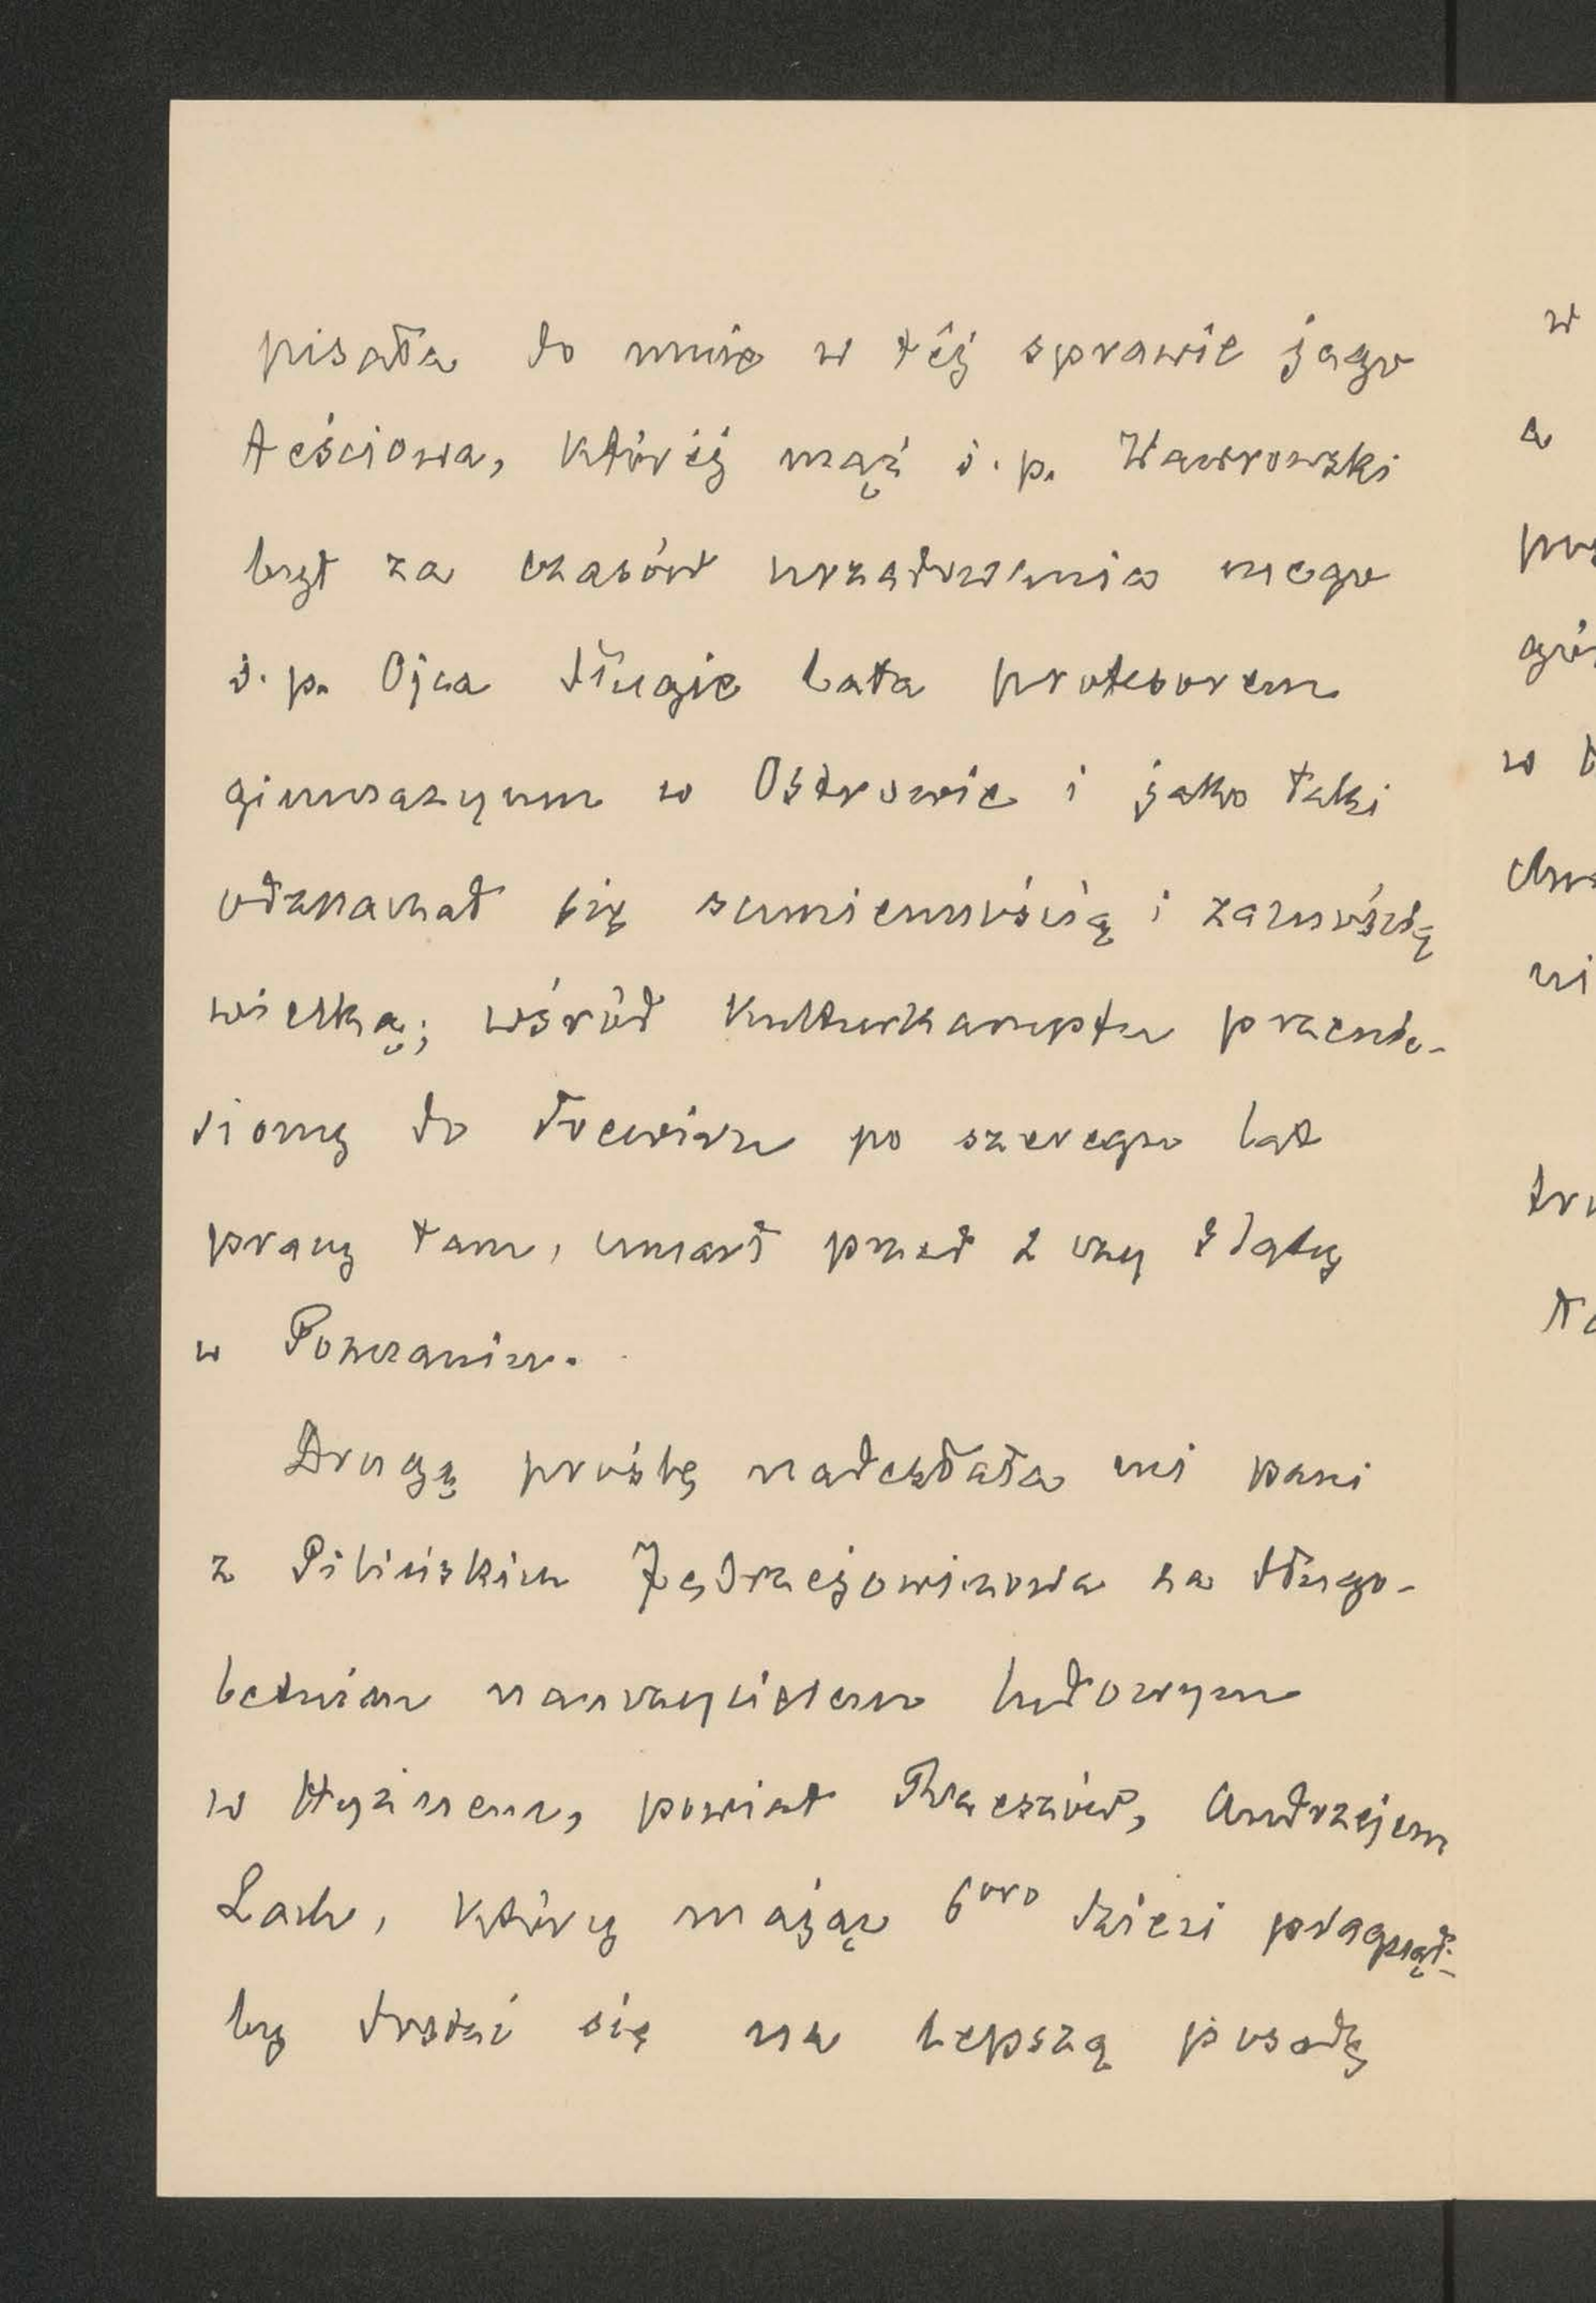 pisała do mnie w téj sprawie jego
teściowa, któréj mąż ś. p. Wawrowski
był za czasów urzędowania mego
ś. p. Ojca długie lata profesorem
gimnazyum w Ostrowie i jako taki
odznaczał się sumiennością i zacnością
wielką; wśród Kulturkampfu przenie-
siony do Trewiru po szeregu lat
pracy tam, umarł przed 2 czy 3 laty
w Poznaniu.
Drugą prośbę nadesłała mi pani
z Pilińskich Jędrzejowiczowa za długo-
letnim nauczycielem ludowym
w Hyżnem, powiat Rzeszów, Andrzejem
Lach, który mając 6oro dzieci pragnął-
by dostać się na lepszą posadę
w
a